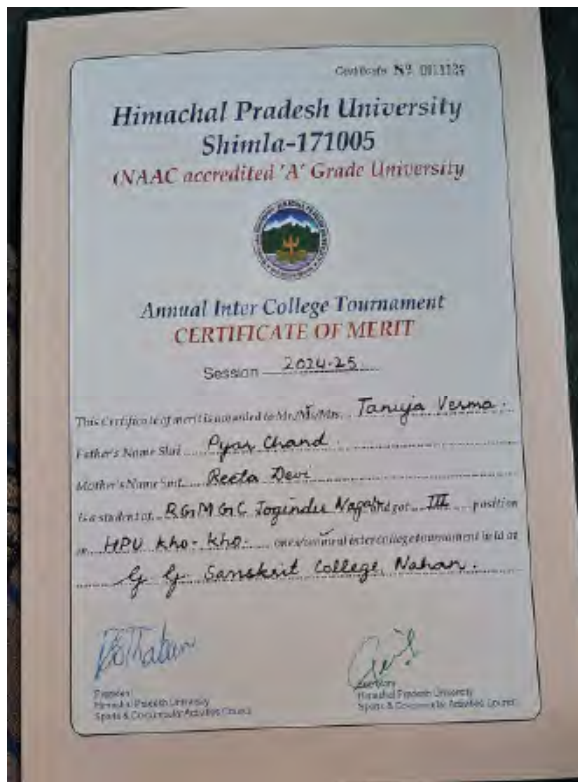 Certificate Nº
Himachal Pradesh University
Shimla-171005
(NAAC accredited 'A' Grade University
Annual Inter College Tournament
CERTIFICATE OF MERIT
Session 2024-25
This Certificate of merit is awarded to Mr./Ms/Mrs. Tanuja Verma.
Father's Name Shri Pyar Chand
Mother's Name Smt. Reeta Devi
is a student of RGMGC Joginder Nagar and got III position
in HPU Kho-Kho. men/women inter college tournament held at
G G. Sanskrit College, Nahan.
President
Himachal Pradesh University
Sports & Co-curricular Activities Council
Secretary
Himachal Pradesh University
Sports & Co-curricular Activities Council